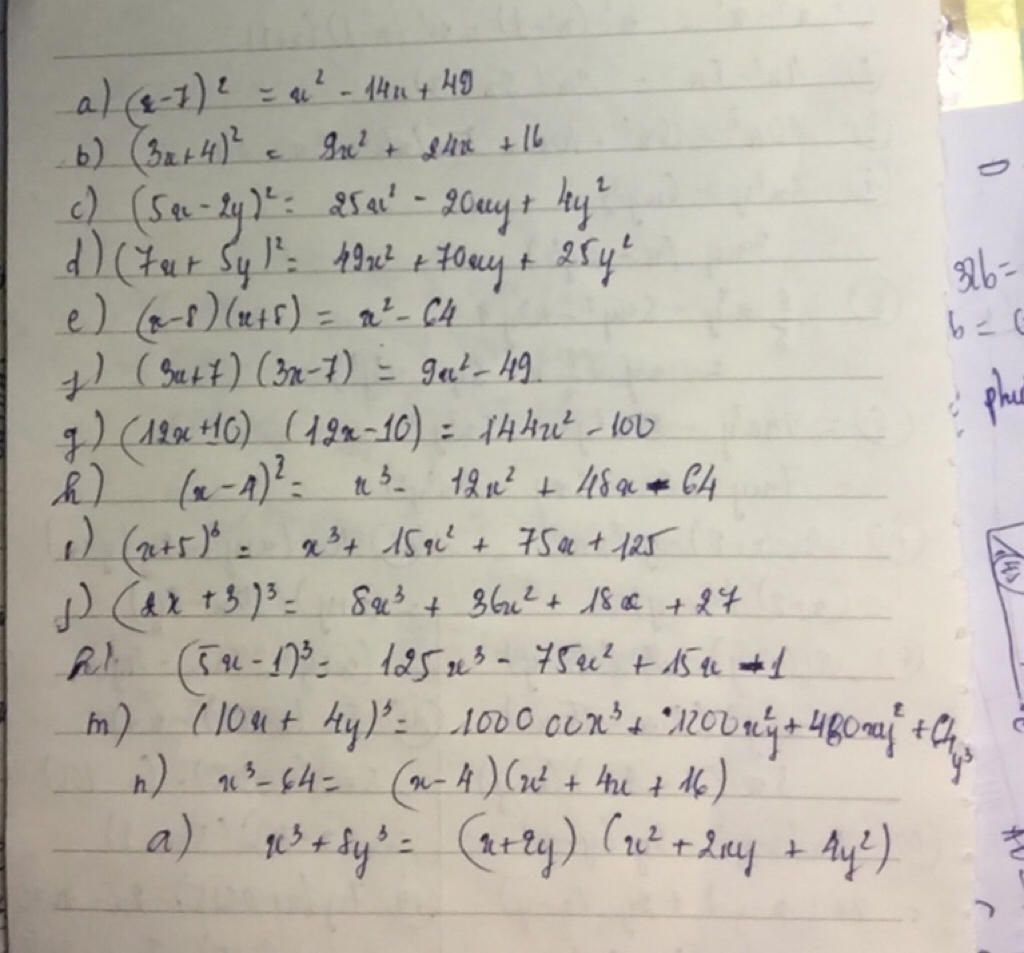 a) (x-7)² = x² - 14x + 49
b) (3x+4)² = 9x² + 24x + 16
c) (5x - 2y)² = 25x² - 20xy + 4y²
d) (7x + 5y)² = 49x² + 70xy + 25y²
e) (x-8)(x+8) = x² - 64
f) (3x+7) (3x-7) = 9x² - 49.
g) (12x+10) (12x-10) = 144x² - 100
h) (x-4)² = x³ - 12x² + 48x - 64
i) (x+5)³ = x³ + 15x² + 75x + 125
j) (2x + 3)³ = 8x³ + 36x² + 18x + 27
k) (5x - 1)³ = 125x³ - 75x² + 15x - 1
m) (10x + 4y)³ = 100000x³ + 1200x²y + 480xy² + 64y³
n) x³ - 64 = (x-4)(x² + 4x + 16)
a) x³ + 8y³ = (x+2y) (x² + 2xy + 4y²)
32b =
b =